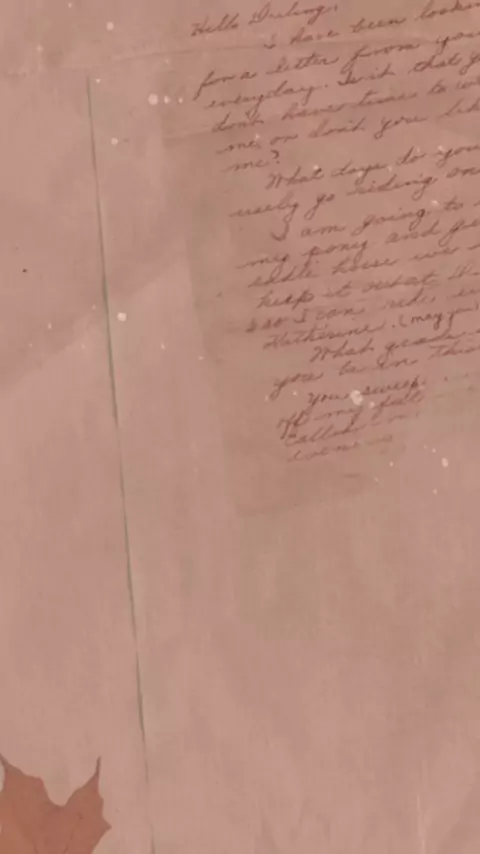 Hello Darling,
I have been lookin
for a letter from you
everyday. Is it that y
don't have time to w
me, or don't you lik
me?
What days do you
usely go riding on
I am going to
my pony and ge
sadle horse
keep it what
so I can ride,
Katherine. (may
What grade
you be in this
You sweep
off my feet